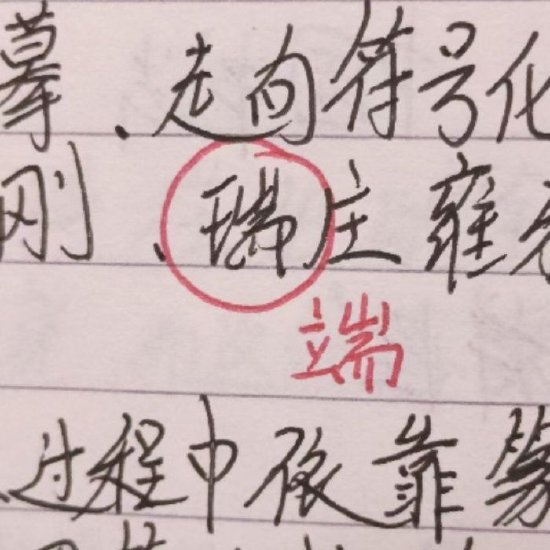 摹、走向符号化
刚、瑞庄雍
端
过程中依靠篆